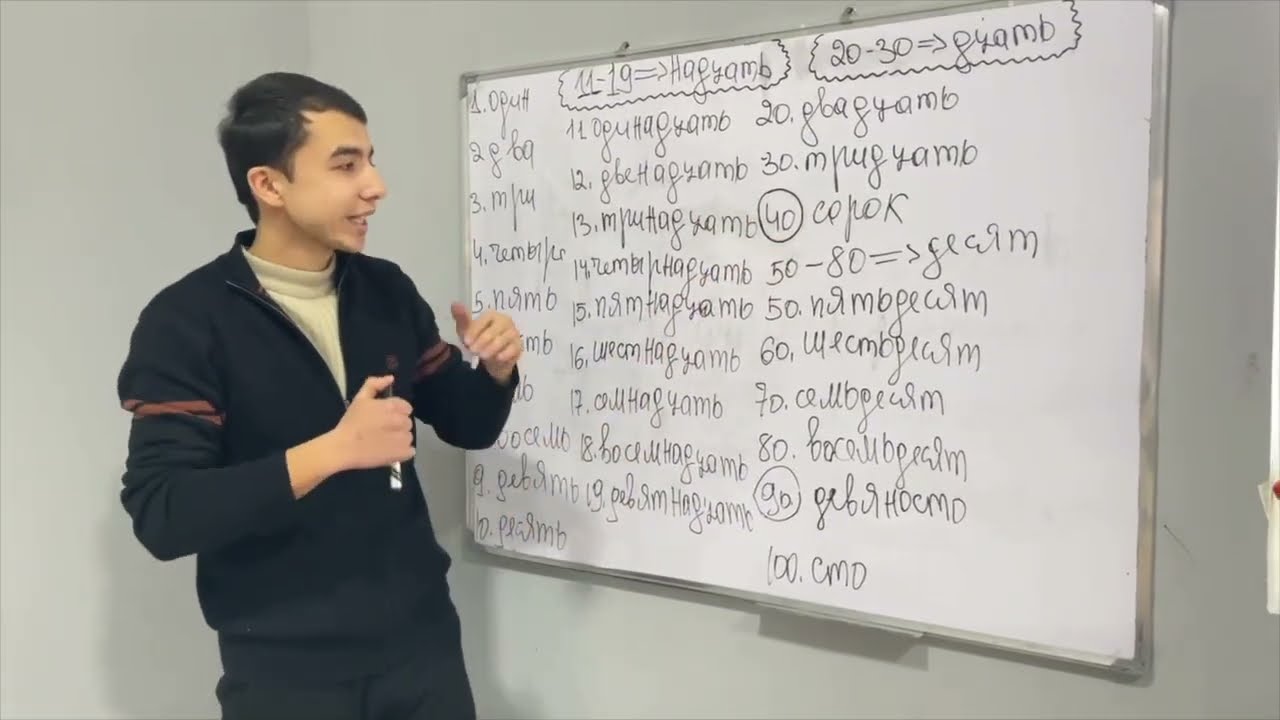 {11-19=>надцать}
{20-30=>дцать}
1. один
2 два
3. три
4. четыре
5. пять
ть
ь
восемь
9. девять
10. десять
11. одинадцать
12. двенадцать
13. тринадцать
14. четырнадцать
15. пятнадцать
16. шестнадцать
17. семнадцать
18. восемнадцать
19. девятнадцать
20. двадцать
30. тридцать
40 сорок
50-80=>десят
50. пятьдесят
60. шестьдесят
70. семьдесят
80. восемьдесят
90 девяносто
100. сто